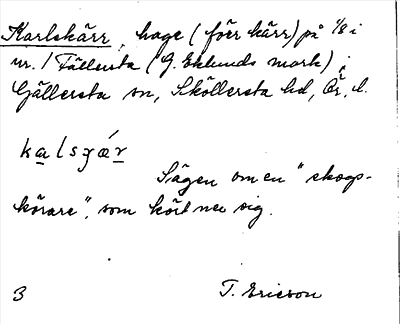 Karlskärr, hage (förr kärr) på 1/8 i
nr. 1 Fällersta (G. Eklunds mark) i
Gällersta sn, Sköllersta hd, Ör. l.
kalsɟæ̀r
Sägen om en "skogs-
körare", som kört ner sig.
3 T. Ericson